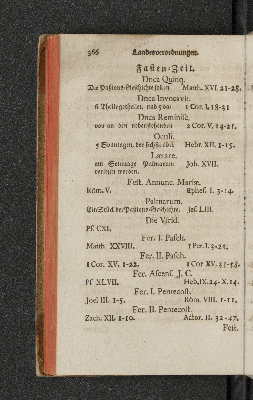 366 Landesverordnungen.
Fasten-Zeit.
Dnca Quinq.
Die Paßions-Geschichte soll in Matth. XVI. 21-28.
Dnca Invocavit.
6 Theile getheilet, und von 1 Cor. I. 18-31
Dnca Reminisc.
von an den nebenstehenden 2 Cor. V. 14-21.
Oculi.
5 Sonntagen, der sechste aber Hebr. XII. 1-15.
Lætare.
am Sonntage Palmarum Joh. XVII.
verlesen werden.
Fest. Annunc. Mariæ.
Röm. V. Ephes. I. 3-14.
Palmarum.
Ein Stück der Paßions-Geschichte. Jes. LIII.
Die Virid.
Ps. CXI.
Fer. I. Pasch.
Matth. XXVIII. 1 Pet. I. 3-25.
Fer. II. Pasch.
1 Cor. XV. 1-22. 1 Cor XV. 35-58.
Fer. Ascens. J. C.
Ps. XLVII. Heb. IX. 24-X. 14.
Fer. I. Pentecost.
Joel III. 1-5. Röm. VIII. 1-11.
Fer. II. Pentecost.
Zach. XII. 1-10. Actor. II. 32-47.
Fest.